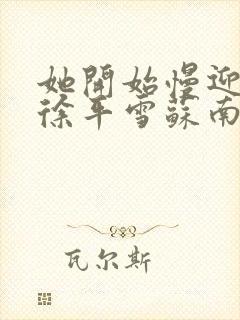 她開始慢迎
徐平雪蘇南
瓦尔斯